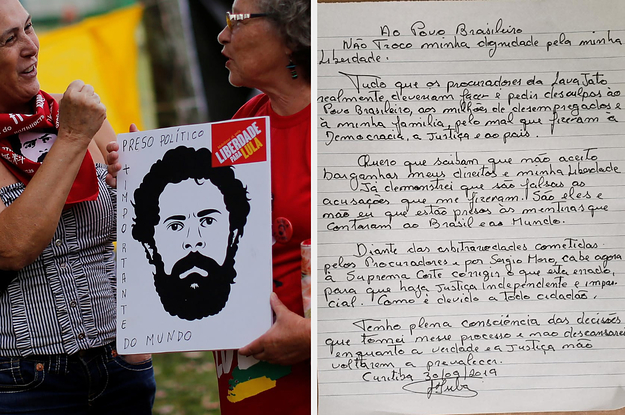 PRESO POLÍTICO
+ IMPORTANTE
DO MUNDO
LIBERDADE
PARA LULA
Ao Povo Brasileiro
Não Troco minha dignidade pela minha
Liberdade.
Tudo que os procuradores da Lava Jato
realmente deveriam fazer é pedir desculpas ao
Povo Brasileiro, aos milhões de desempregados e
à minha família, pelo mal que fizeram à
Democracia, a Justiça e ao país.
Quero que saibam que não aceito
barganhas meus direitos e minha Liberdade
Já demonstrei que são falsas as
acusações que me fizeram. São eles e
não eu que estão presos às mentiras que
contaram ao Brasil e ao Mundo.
Diante das arbitrariedades cometidas
pelos Procuradores e por Sergio Moro, cabe agora
à Suprema Corte corrigir o que esta errado,
para que haja Justiça independente e impar-
cial. Como é devido a Todo cidadão.
Tenho plena consciência das decisões
que tomei nesse processo e não descansarei
enquanto a verdade e a Justiça não
voltarem a prevalecer.
Curitiba 30/09/2019
Lula